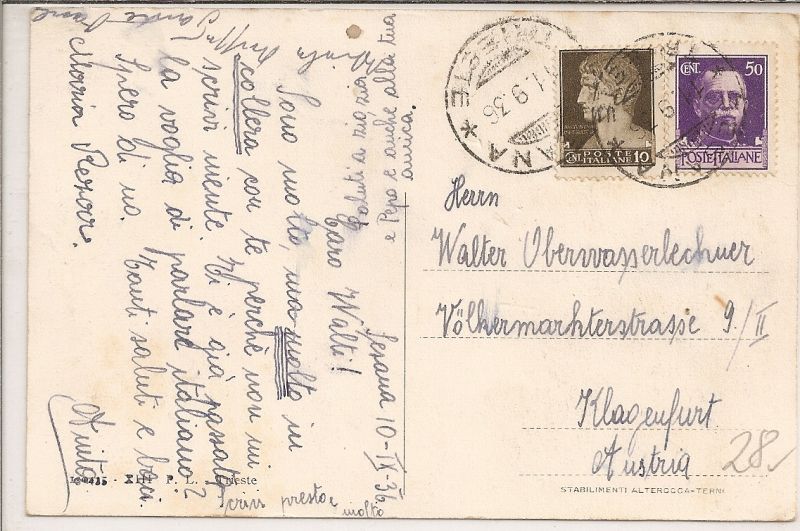 Sesana 10-IX-36
Caro Walti!
Sono molto, molto in
collera con te perchè non mi
scrivi niente. Ti è già passata
la voglia di parlare italiano?
Spero di no. Tanti saluti e baci
Anita
Maria
Saluti a zio zia
e Pepo e anche alla tua
amica.
scrivi presto e
molto
XIII P. L. Trieste
SESANA * TRIESTE *
9.36
POSTE
ITALIANE
CENT 10
CENT. 50
POSTE ITALIANE
Herrn
Walter Oberwasserlechner
Völkermarkterstrasse 9/II
Klagenfurt
Austria
28.-
STABILIMENTI ALTEROCCA-TERNI